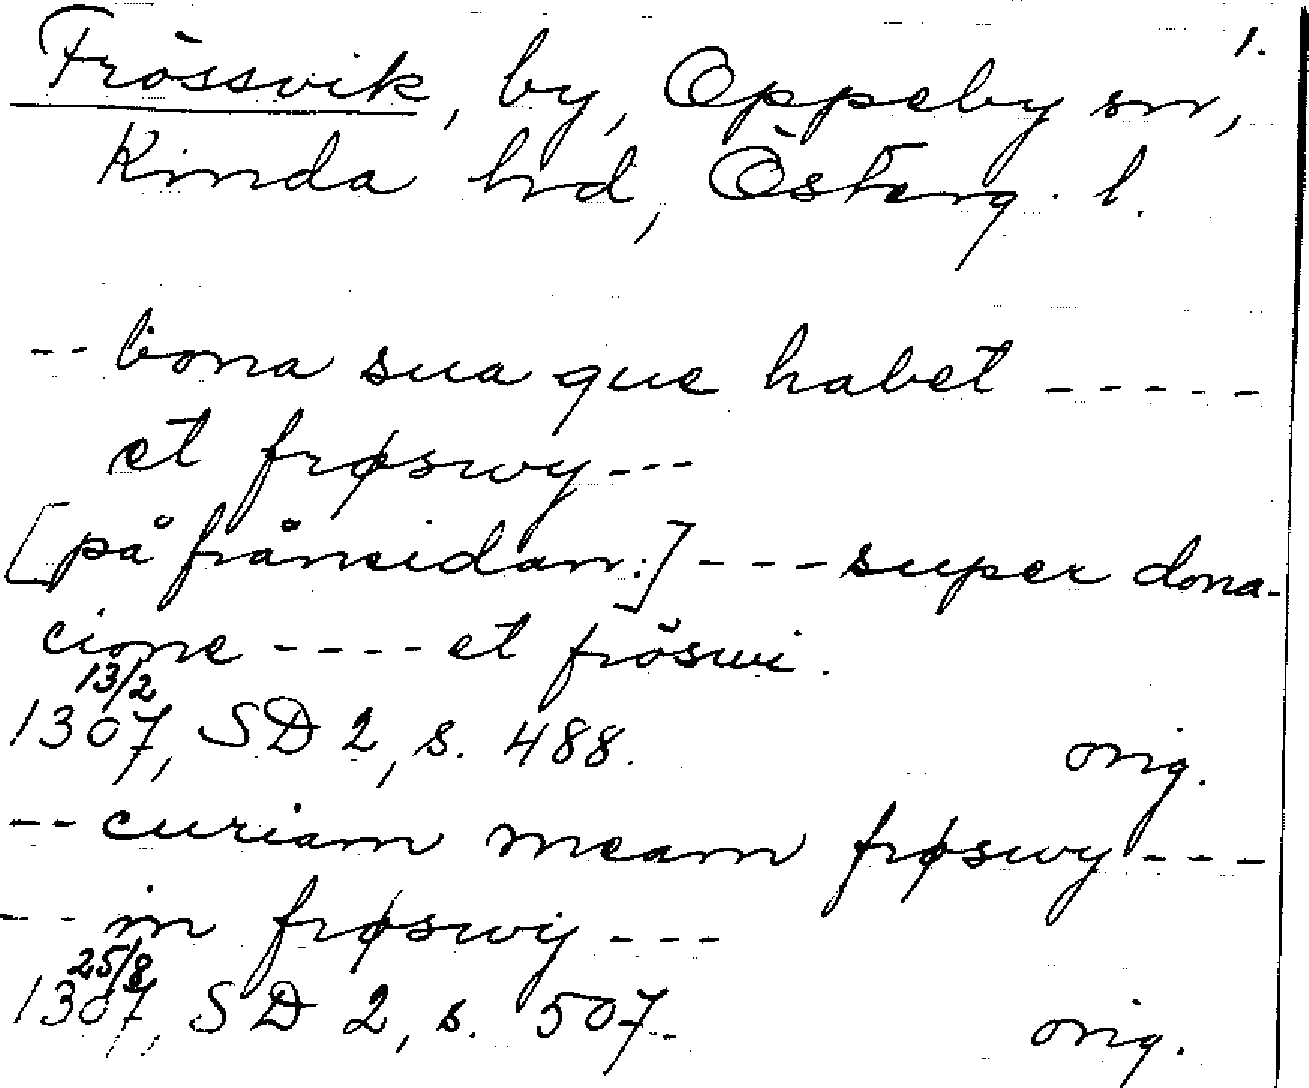 1.
Frössvik, by, Oppeby sn,
Kinda hd, Österg. l.
-- bona sua que habet -----
et frøswy ---
[på frånsidan:] --- super dona-
cione ---- et fröswi.
13/2
1307, SD 2, s. 488. orig.
-- curiam meam frøswy ---
-- in frøswÿ ---
25/8
1307, SD 2, s. 507. orig.